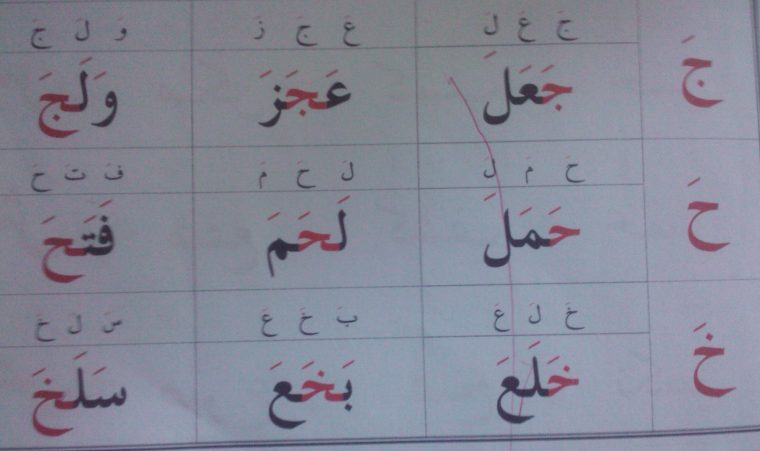 جَ عَ لَ عَ جَ زَ وَ لَ جَ
جَ جَعَلَ عَجَزَ وَلَجَ
حَ مَ لَ لَ حَ مَ فَ تَ حَ
حَ حَمَلَ لَحَمَ فَتَحَ
خَ لَ عَ بَ خَ عَ سَ لَ خَ
خَ خَلَعَ بَخَعَ سَلَخَ